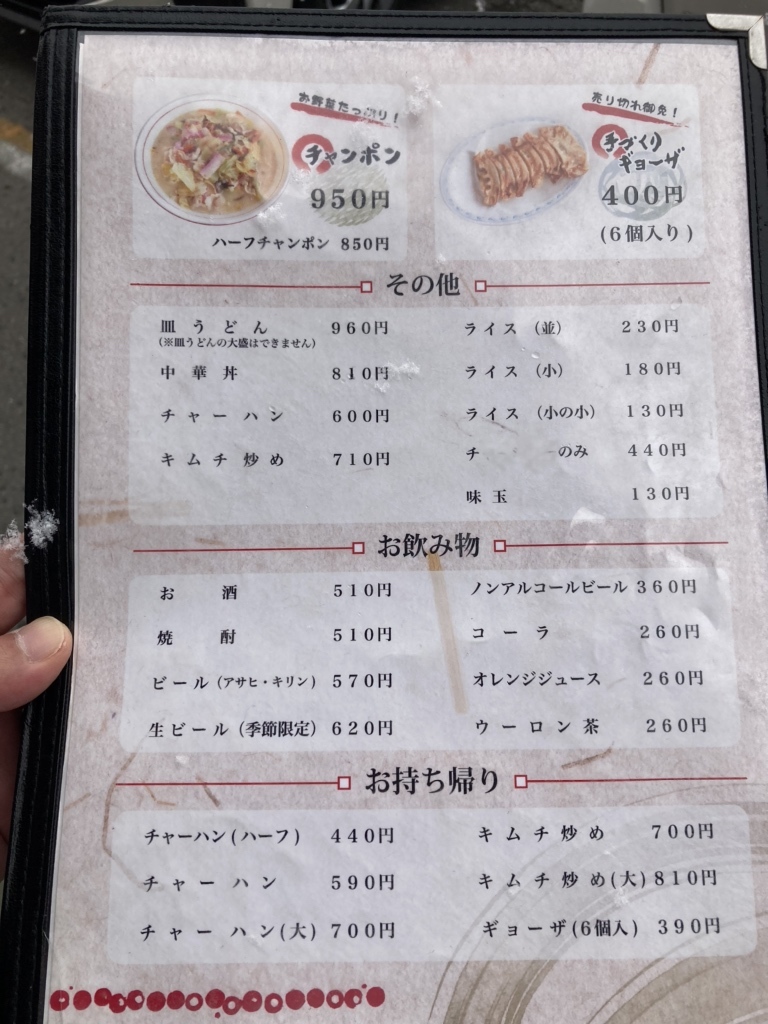 お野菜たっぷり!
チャンポン
950円
ハーフチャンポン 850円
売り切れ御免!
手づくり
ギョーザ
400円
(6個入り)
その他
皿うどん 960円
(※皿うどんの大盛はできません)
中華丼 810円
チャーハン 600円
キムチ炒め 710円
ライス (並) 230円
ライス (小) 180円
ライス (小の小) 130円
チ のみ 440円
味玉 130円
お飲み物
お酒 510円
焼酎 510円
ビール (アサヒ・キリン) 570円
生ビール (季節限定) 620円
ノンアルコールビール 360円
コーラ 260円
オレンジジュース 260円
ウーロン茶 260円
お持ち帰り
チャーハン(ハーフ) 440円
チャーハン 590円
チャーハン(大) 700円
キムチ炒め 700円
キムチ炒め(大) 810円
ギョーザ(6個入) 390円